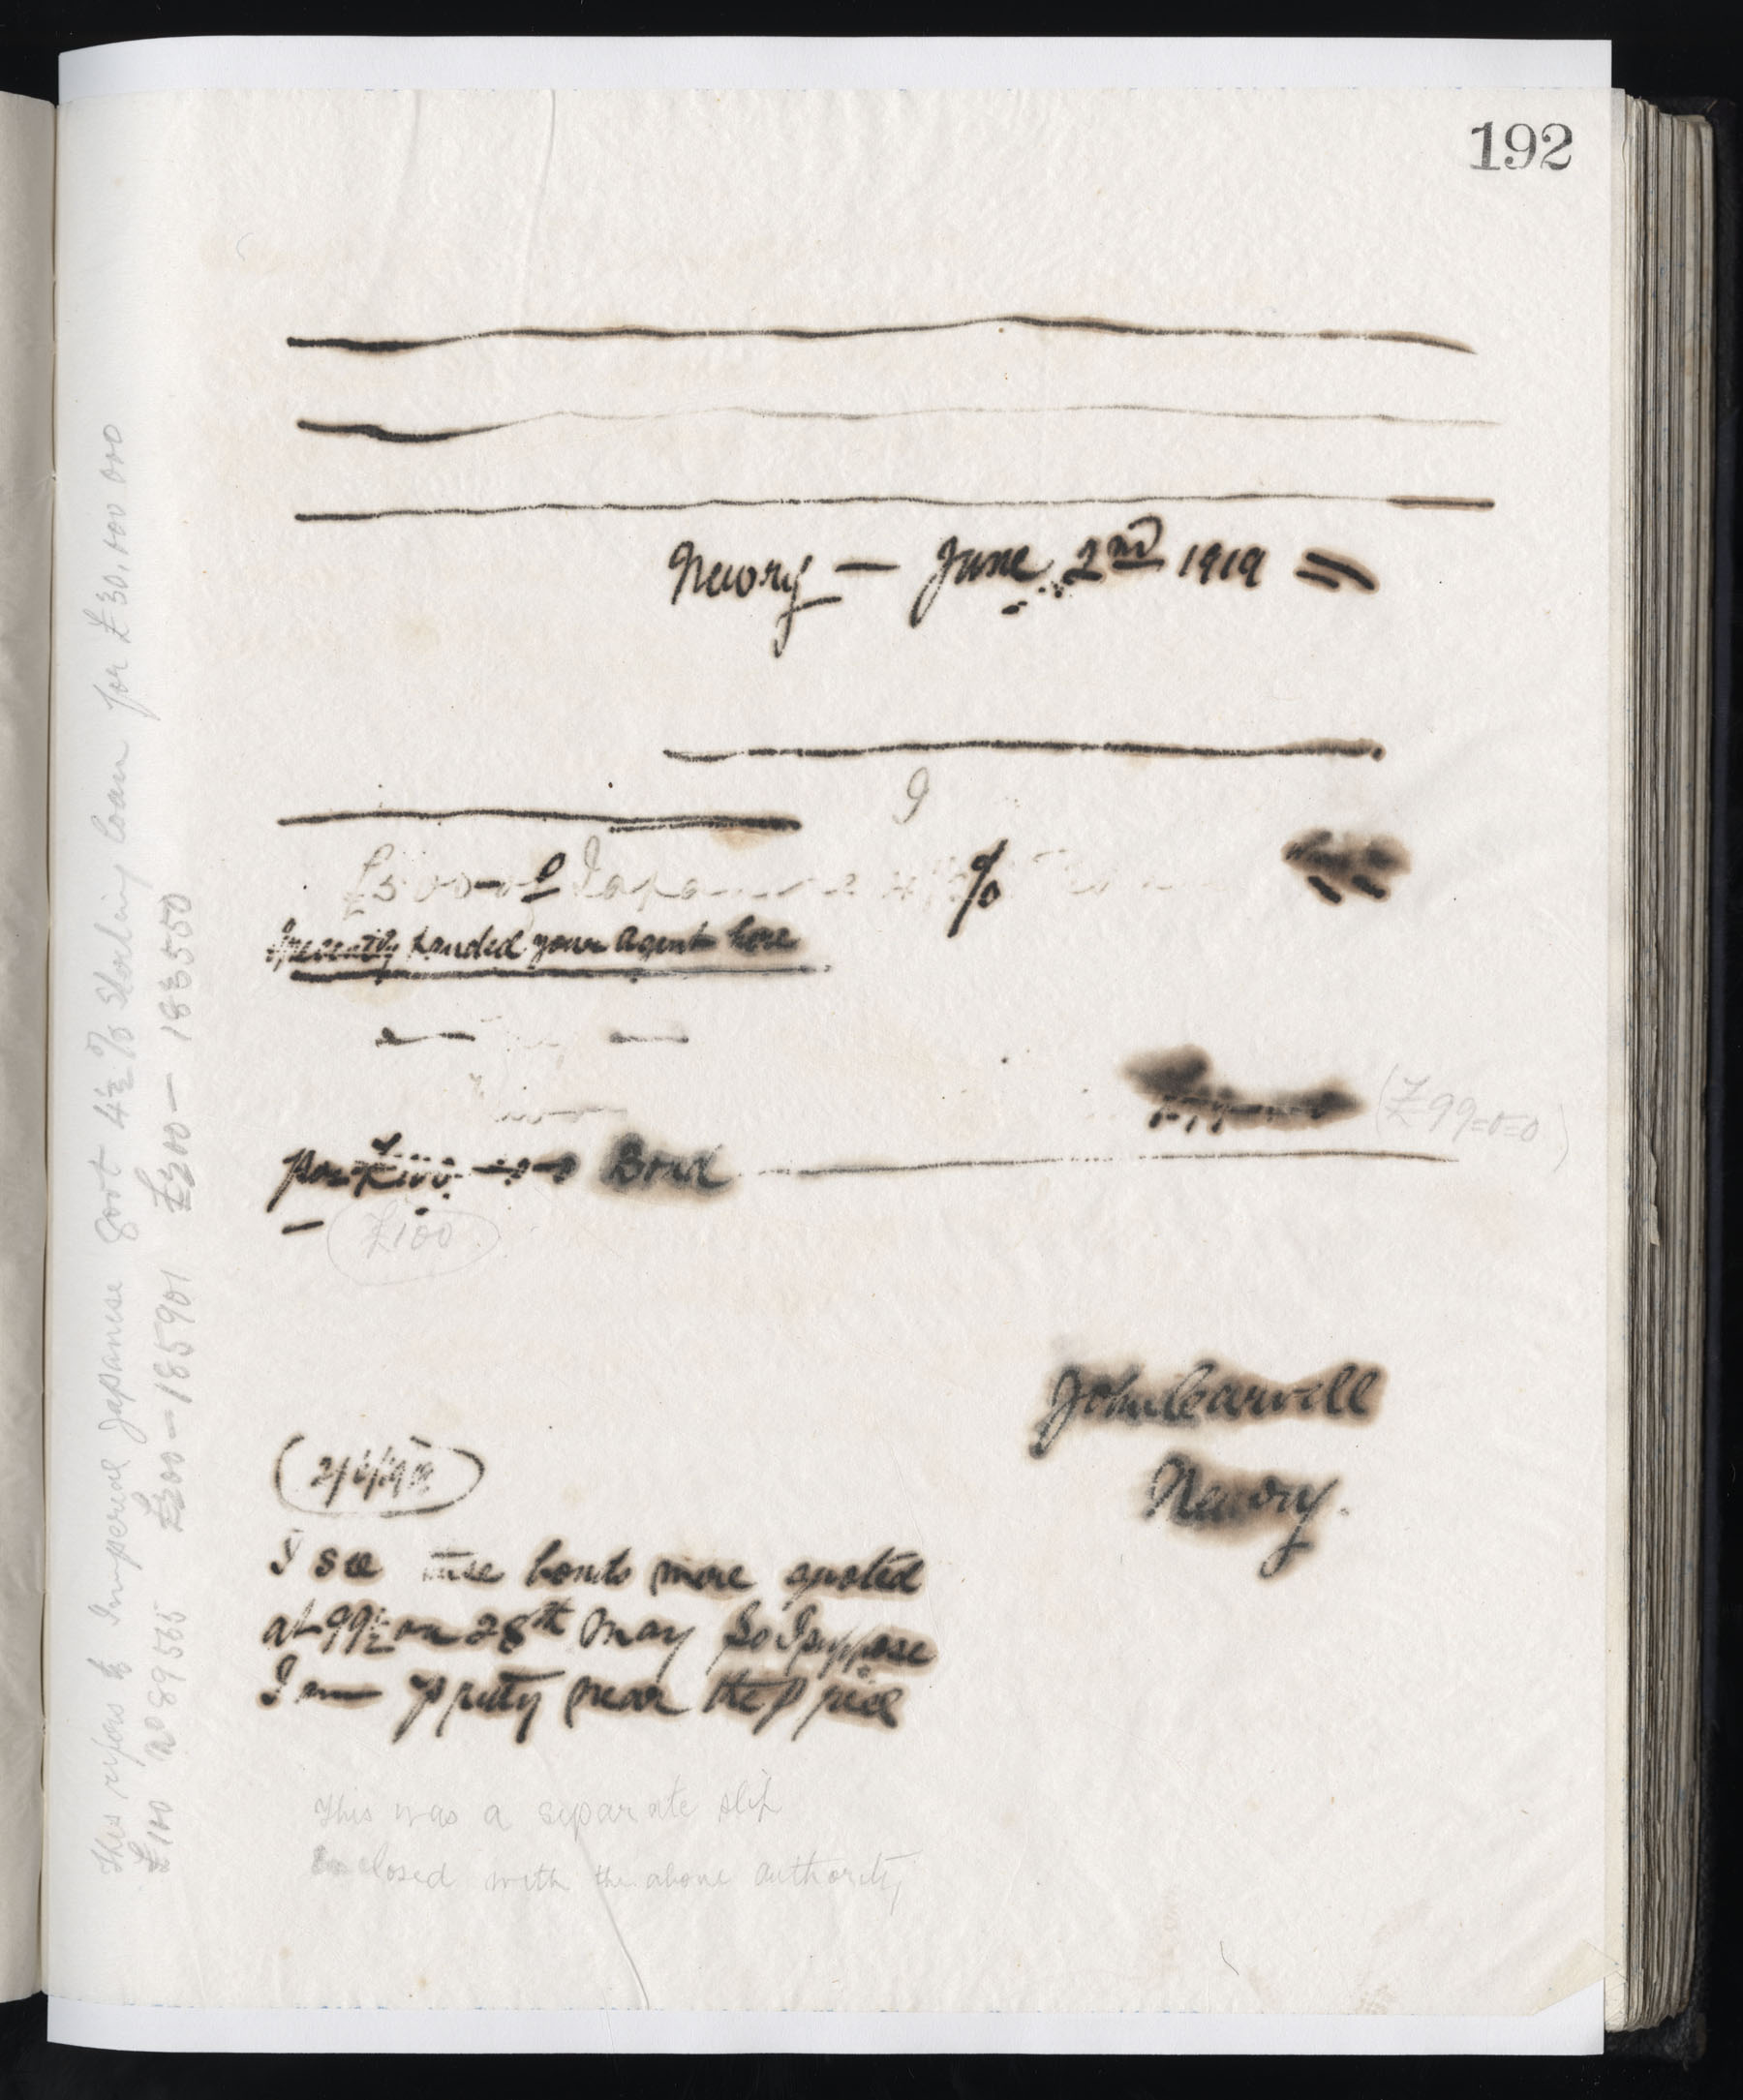 192
Newry — June 2nd 1919 =
9
£500-0-0 Japanese 4½ %
I recently handed your agent here
(£99=0=0)
per £100-0-0 Bond
(£100)
John Carvill
Newry.
(2/6/19)
I see these bonds were quoted
at 99½ on 28th May so I suppose
I am pretty near the price
This was a separate slip
Enclosed with the above authority
This refers to Imperial Japanese Govt 4½ % Sterling Loan for £30,000 000
£100 No 89565 £200 — 185901 £200 — 183550